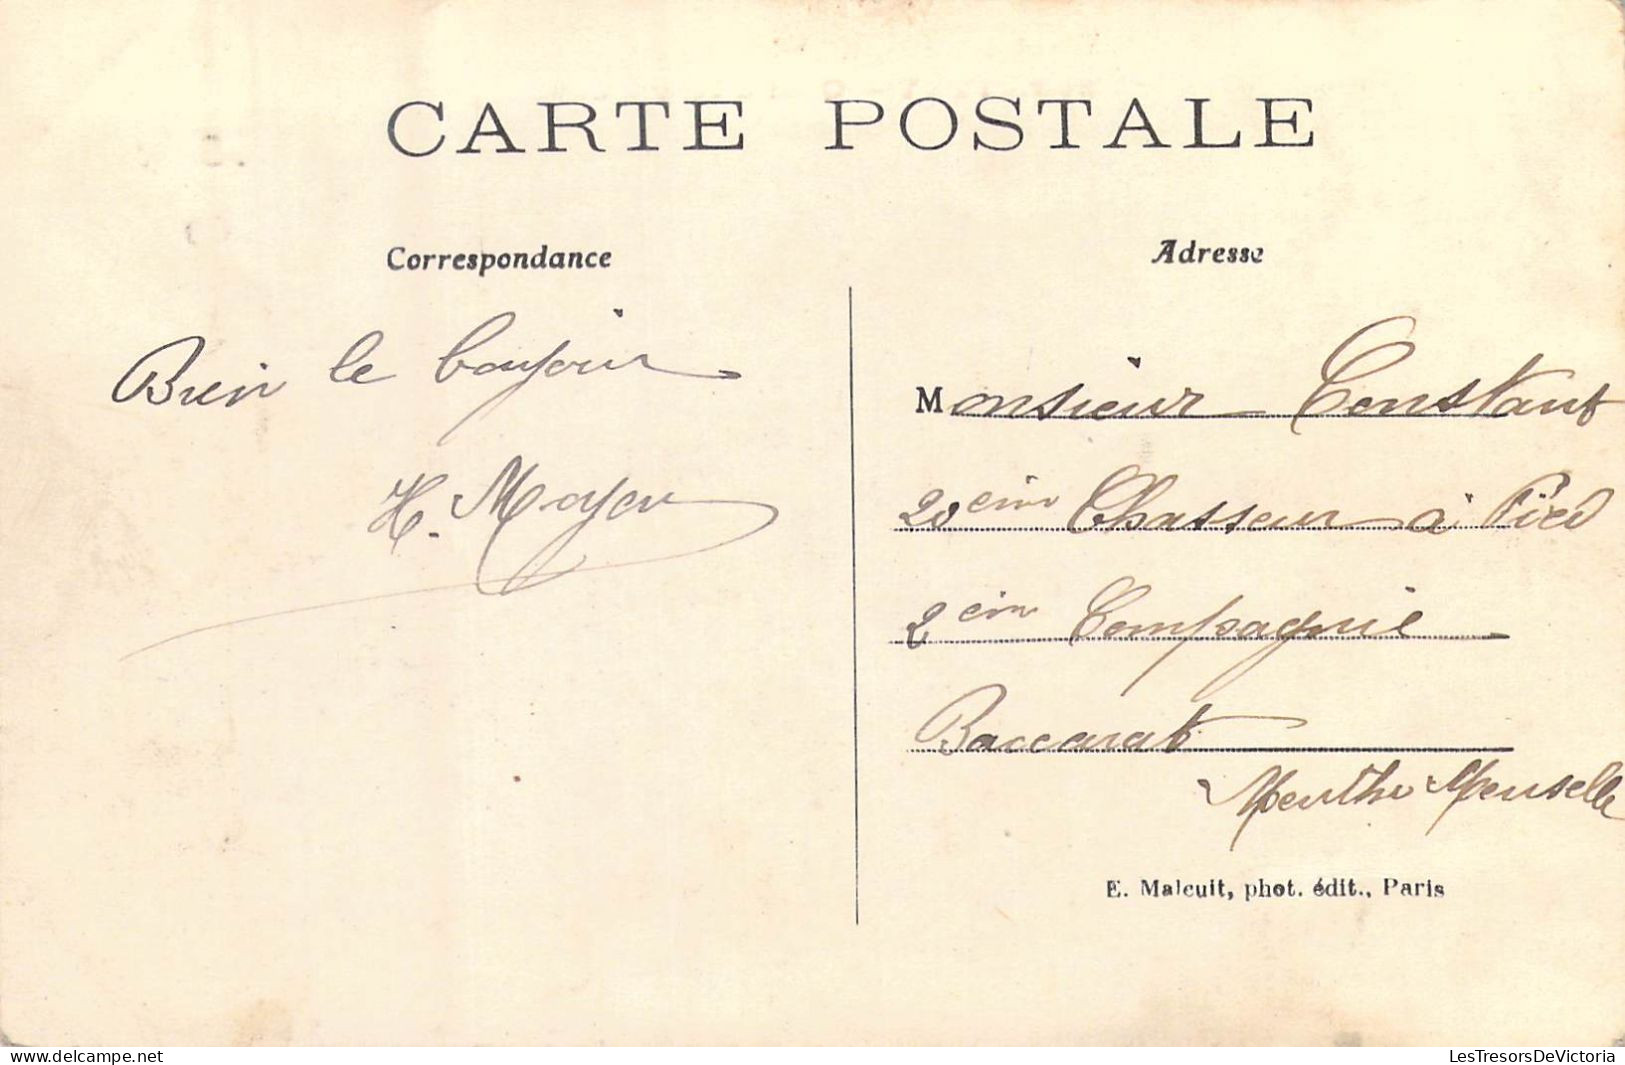 CARTE POSTALE
Correspondance
Bien le bonjour
H. Moyen
Adresse
Monsieur Constant
20eim Chasseur à Pied
2eim Compagnie
Baccarat
Meurthe Meuselle
E. Malcuit, phot. édit., Paris
delcampe.net
LesTresorsDeVictoria